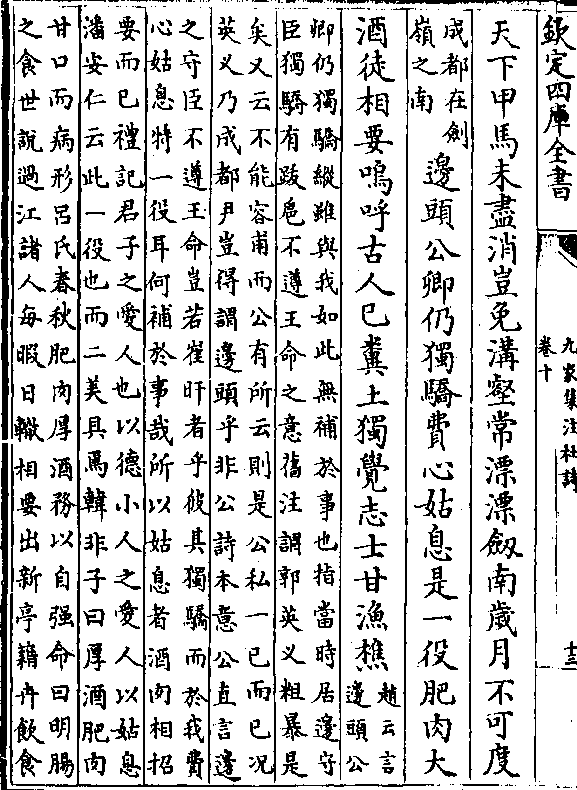 欽定四庫全書
九家集注杜詩
卷十
十三
天下甲馬未盡消豈免溝壑常漂漂劔南歲月不可度
成都在劍
嶺之南
邊頭公卿仍獨驕費心姑息是一役肥肉大
酒徒相要嗚呼古人已糞土獨覺志士甘漁樵
趙云言
邊頭公
卿仍獨驕縱雖與我如此無補於事也指當時居邊守
臣獨驕有跋扈不遵王命之意舊注謂郭英乂粗暴是
矣又云不能容甫而公有所云則是公私一已而已况
英乂乃成都尹豈得謂邊頭乎非公詩本意公直言邊
之守臣不遵王命豈若崔旰者乎彼其獨驕而於我費
心姑息特一役耳何補於事哉所以姑息者酒肉相招
要而已禮記君子之愛人也以德小人之愛人以姑息
潘安仁云此一役也而二美具焉韓非子曰厚酒肥肉
甘口而病形呂氏春秋肥肉厚酒務以自强命曰明腸
之食世說過江諸人每暇日輙相要出新亭籍卉飲食